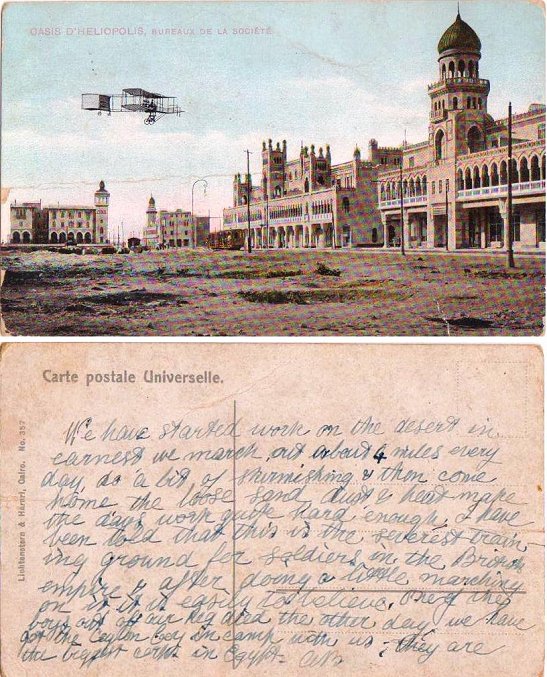 OASIS D'HELIOPOLIS, BUREAUX DE LA SOCIÉTÉ
Carte postale Universelle.
Lichtenstern & Harari, Cairo. No. 357
We have started work on the desert in
earnest we march out about 4 miles every
day, do a bit of skurmishing & then come
home the loose sand dust & heat make
the days work quite hard enough, I have
been told that this is the severest train-
ing ground for soldiers in the British
empire & after doing a little marching
on it it is easily to believe, one of the
boys out of our Reg died the other day we have
got the Ceylon Coy in camp with us, they are
the biggest in Egypt.